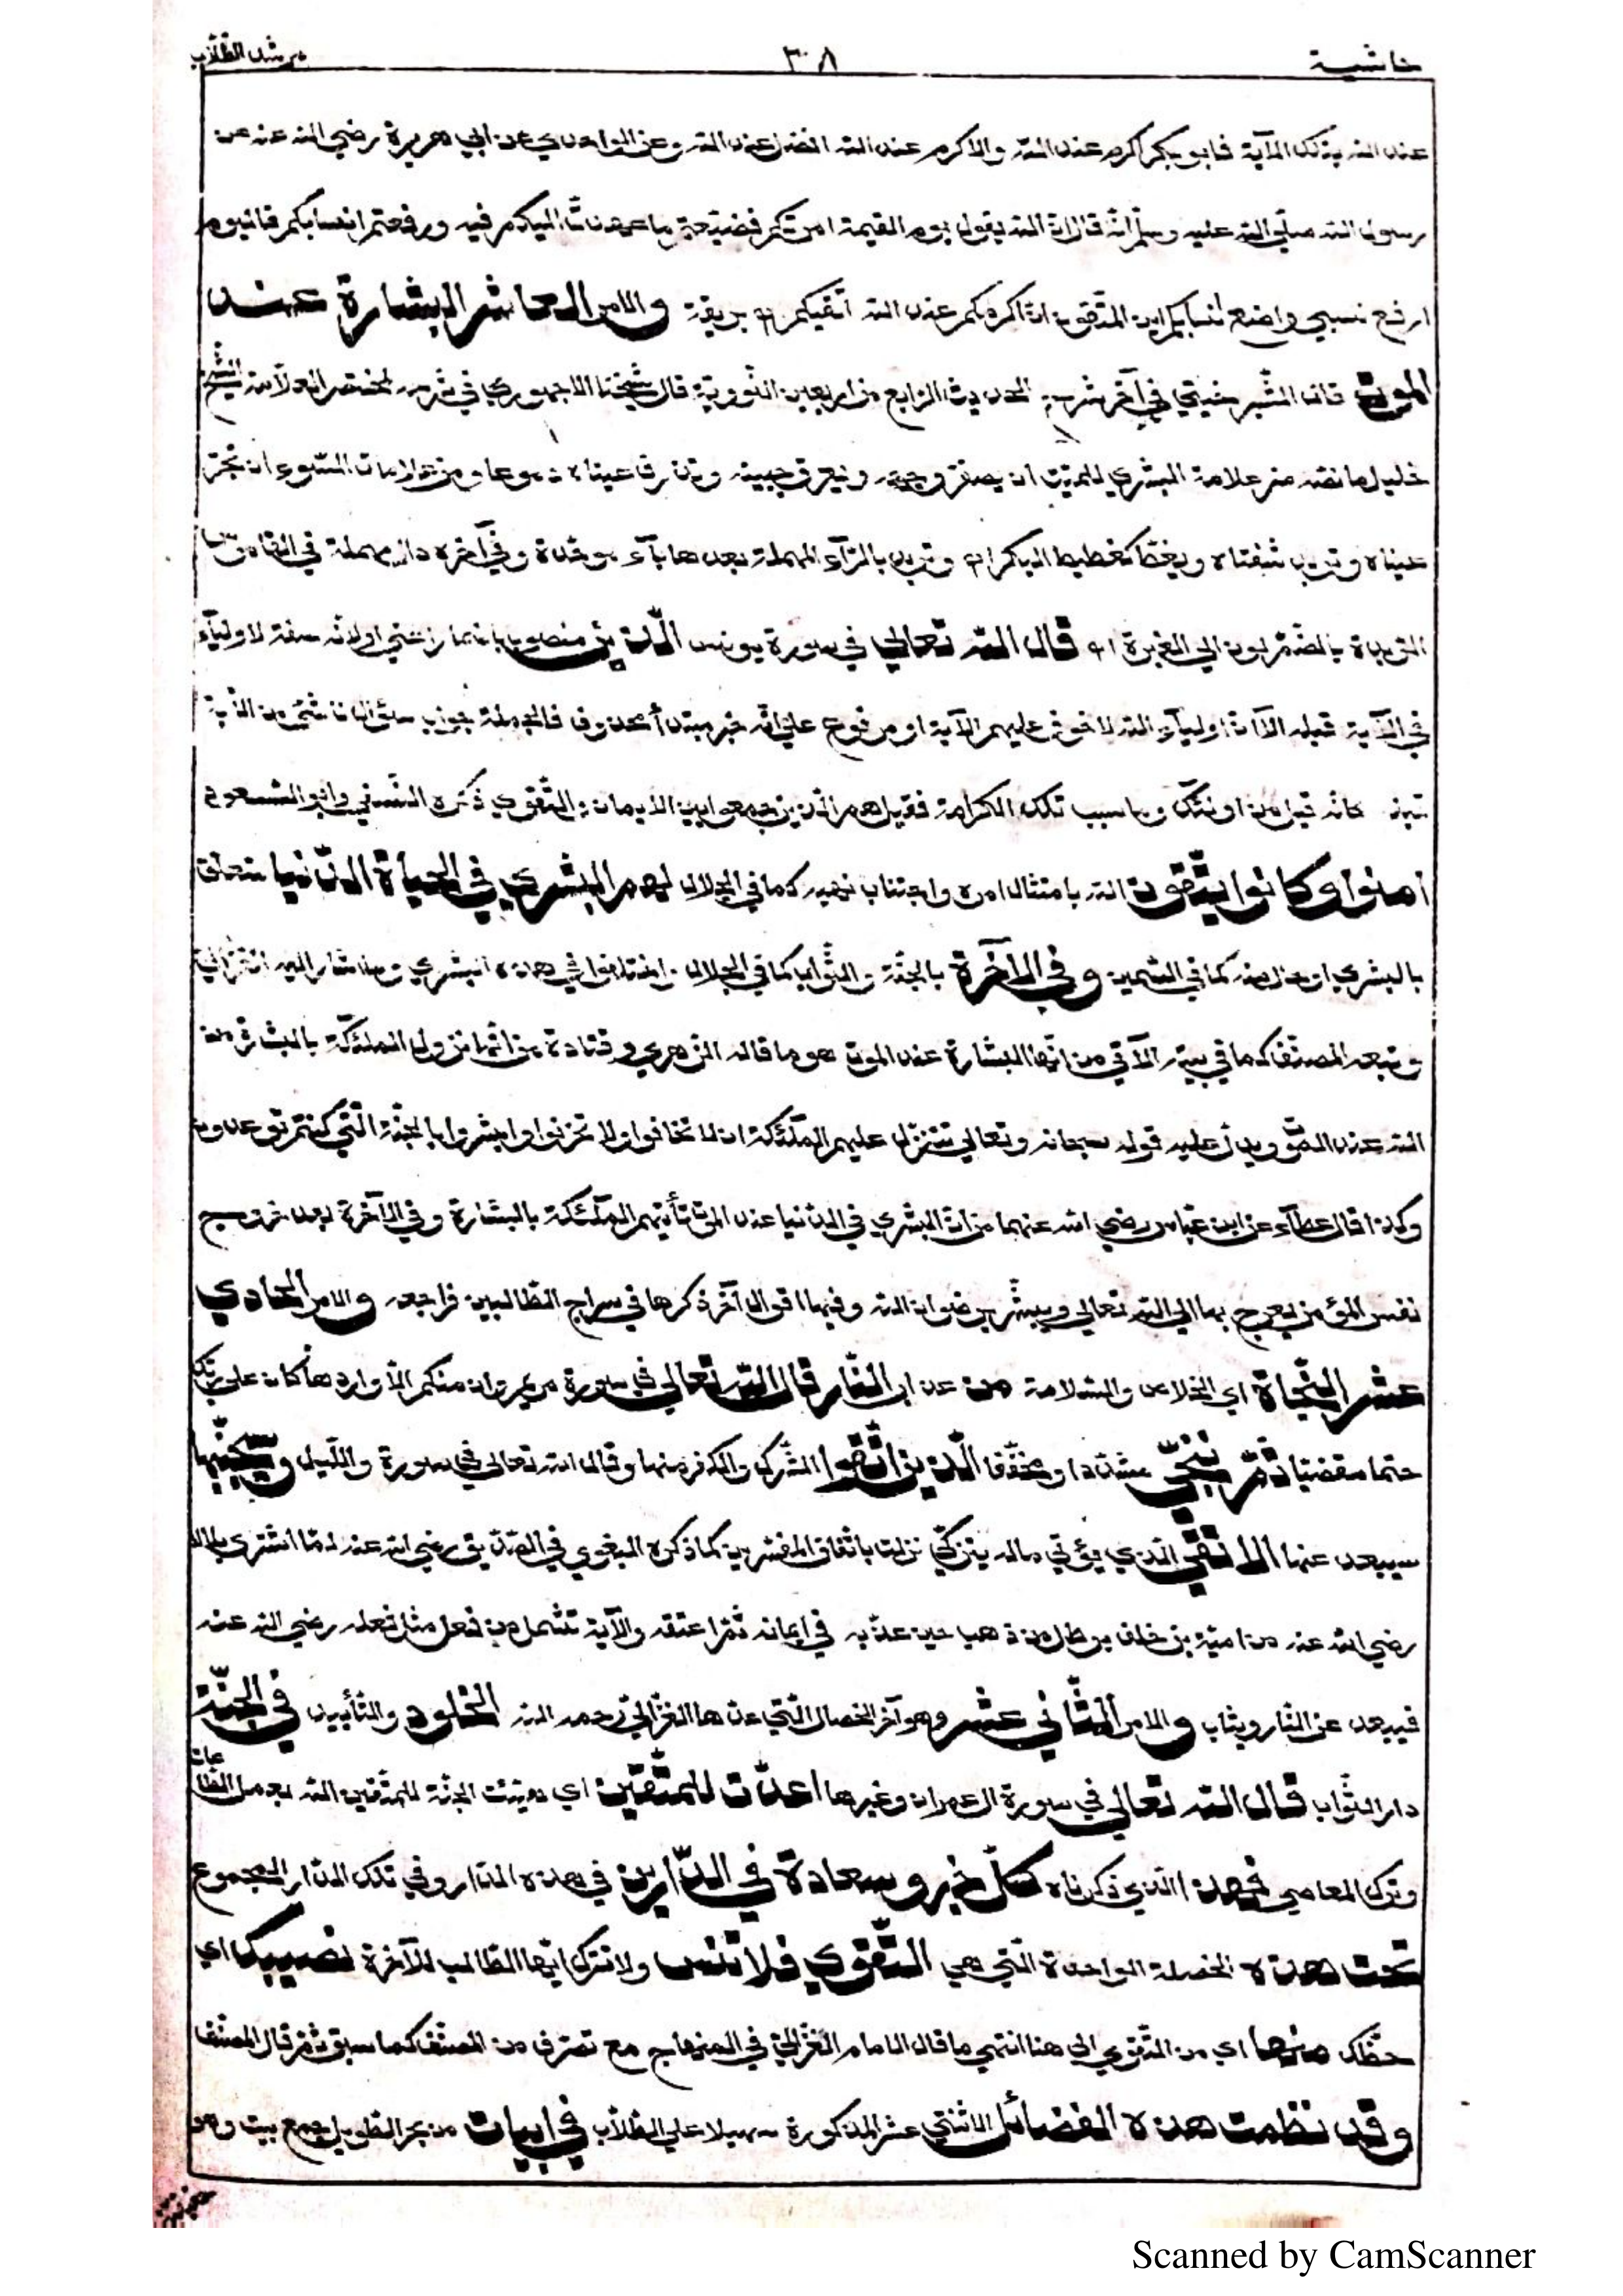 حاشية ٣٠٨ مرشد الطّلّاب
عند الله بتلك الآية فابو بكر اكرم عند الله والاكرم عند الله افضل عند الله وعن الواحدي عن ابي هريرة رضي الله عنه عن
رسول الله صلّي الله عليه وسلّم انّه قال انّ الله يقول يوم القيمة امرتكم فضيّعتم ما عهدت اليكم فيه ورفعتم انسابكم فاليوم
ارفع نسبي واضع انسابكم اين المتّقون انّ اكرمكم عند الله اتقيكم اه بريقة والامر العاشر البشارة عند
الموت قال الشّبرخيتي في آخر شرح الحديث الرّابع من اربعين النّوويّة قال شيخنا الاجهوري في شرحه لمختصر العلّامة الشّيخ
خليل ما نصّه من علامة البشري للميّت ان يصفرّ وجهه ويعرق جبينه وتذرف عيناه دموعا ومن علامات السّوء ان تحمرّ
عيناه وتربد شفتاه ويغطّ كغطيط البكر اه وتربد بالرّآء المهملة بعدها بآء موحّدة وفي آخره دال مهملة في القاموس
الرّبدة بالضّمّ لون الي الغبرة اه قال الله تعالي في سورة يونس الّذين منصوب باضمار اعني او لانّه صفة لاوليآء
في الآية قبله الآ انّ اوليآء الله لا خوف عليهم الآية او مرفوع علي انّه خبر مبتدأ محذوف فالجملة جواب سؤال ناشئ من الآية
كانه قيل من اولئك وما سبب تلك الكرامة فقيل هم الّذين جمعوا بين الايمان والتّقوي ذكره النّسفي وابو السّعود
آمنوا وكانوا يتّقون الله بامتثال امره واجتناب نهيه كما في الجلال لهم البشري في الحياة الدّنيا متعلّق
بالبشري او حال منه كما في السّمين وفي الآخرة بالجنّة والثّواب كما في الجلال واختلفوا في هذه البشري وما اشار اليه الغزّالي
وتبعه المصنّف كما في بيته الآتي من انّها البشارة عند الموت هو ما قاله الزّهري وقتادة من انّها نزول الملئكة بالبشارة من
الله عند الموت ويدلّ عليه قوله سبحانه وتعالي تتنزّل عليهم الملئكة ان لا تخافوا ولا تحزنوا وابشروا بالجنّة الّتي كنتم توعدون
وكذا قال عطآء عن ابن عبّاس رضي الله عنهما من انّ البشري في الدّنيا عند الموت تأتيهم الملئكة بالبشارة وفي الآخرة بعد خروج
نفس المؤمن يعرج بها الي الله تعالي ويبشّر برضوان الله وفيها اقوال آخر ذكرها في سراج الطّالبين فراجعه والامر الحادي
عشر النّجاة اي الخلاص والسّلامة من عذاب النّار قال الله تعالي في سورة مريم وان منكم الّا واردها كان علي ربّك
حتما مقضيا ثمّ ننجّي مشدّدا ومخفّفا الّذين اتّقوا الشّرك والكفر منها وقال الله تعالي في سورة واللّيل وسيجنّبها
سيبعد عنها الاتقي الّذي يؤتي ماله يتزكّي نزلت باتّفاق المفسّرين كما ذكره البغوي في الصّدّيق رضي الله عنه لمّا اشتري بلالا
رضي الله عنه من اميّة بن خلف برطل من ذهب حين عذّبه في ايمانه ثمّ اعتقه والآية تشمل من فعل مثل فعله رضي الله عنه
فيبعد عن النّار ويثاب والامر الثّاني عشر وهو آخر الخصال الّتي عدّها الغزّالي رحمه الله الخلود والتّأبيد في الجنّة
دار الثّواب قال الله تعالي في سورة آل عمران وغيرها اعدّت للمتّقين اي هيّئت الجنّة للمتّقين الله بعمل الطّاعات
وترك المعاصي فهذا الّذي ذكرناه كلّ خير وسعادة في الدّارين في هذه الدّار وفي تلك الدّار المجموع
تحت هذه الخصلة الواحدة الّتي هي التّقوي فلا تنس ولا تترك ايّها الطّالب للآخرة نصيبك اي
حظّك منها اي من التّقوي الي هنا انتهي ما قال الامام الغزّالي في المنهاج مع تصرّف من المصنّف كما سبق ثمّ قال المصنّف
وقد نظمت هذه الفضائل الاثنتي عشر المذكورة تسهيلا علي الطّلّاب في ابيات من بحر الطّويل جمع بيت وهو
Scanned by CamScanner